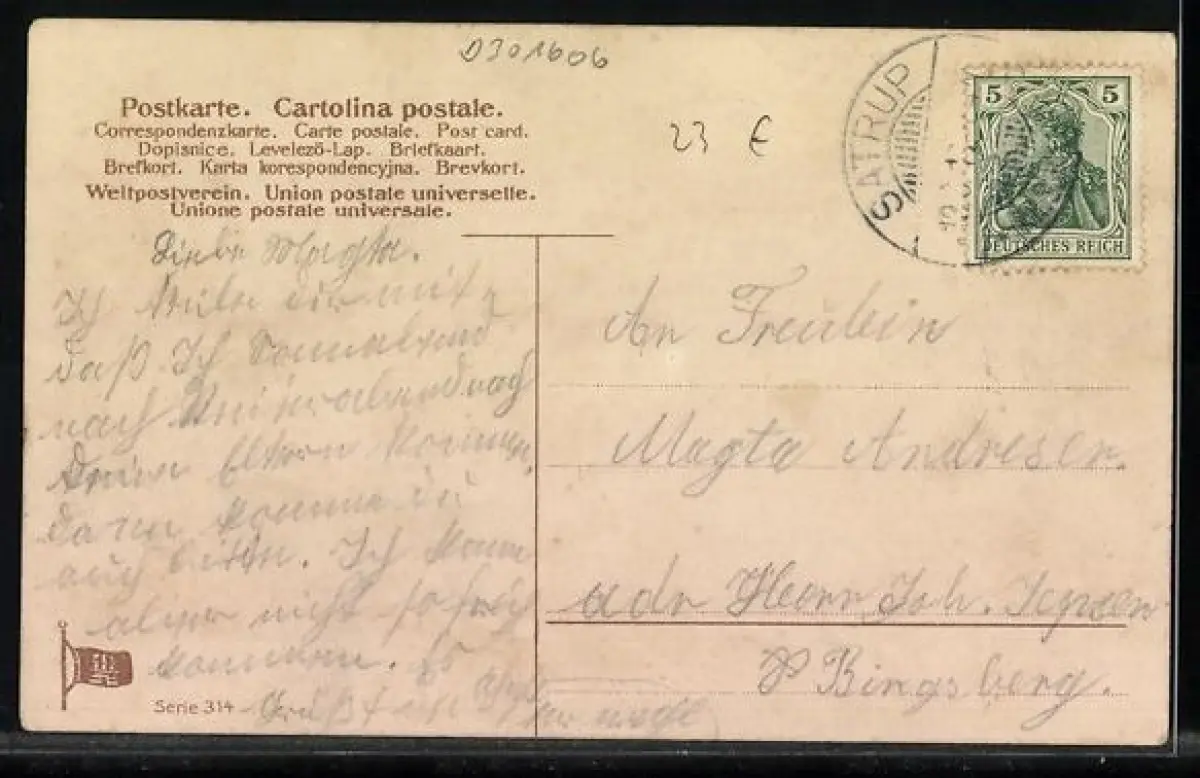 0301606
Postkarte. Cartolina postale.
Correspondenzkarte. Carte postale. Post card.
Dopisnice. Levelező-Lap. Briefkaart.
Brefkort. Karta korespondencyjna. Brevkort.
Weltpostverein. Union postale universelle.
Unione postale universale.
23 €
SATRUP
5 5
DEUTSCHES REICH
Liebe Magta.
Ich theile dir mit
daß Ich Sonnabend
nach
Deinen Eltern kommen,
dann komme du
auch bitte. Ich kann
aber nicht so früh
kommen. Es
Grüßt
An Freulein
Magta Andresen.
adr Herr Joh. Jepsen
P Bingsberg.
Serie 314